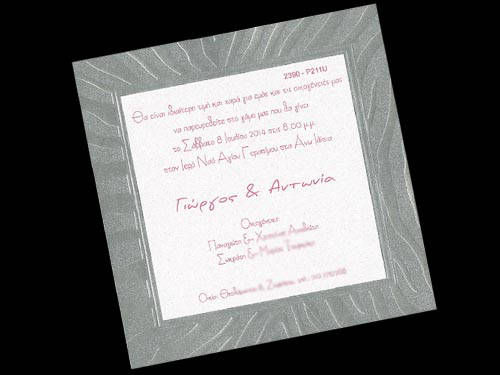 2390 - P211U
Θα είναι ιδιαίτερη τιμή και χαρά για εμάς και τις οικογένειές μας
να παρευρεθείτε στο γάμο μας που θα γίνει
το Σάββατο 8 Ιουλίου 2014 στις 8:00 μ.μ.
στον Ιερό Ναό Αγίου Γερασίμου στα Άνω Ιλίσια
Γιώργος & Αντωνία
Οικογένειες
Παναγιώτη &
Σωκράτη & Μαρία
Οικία: